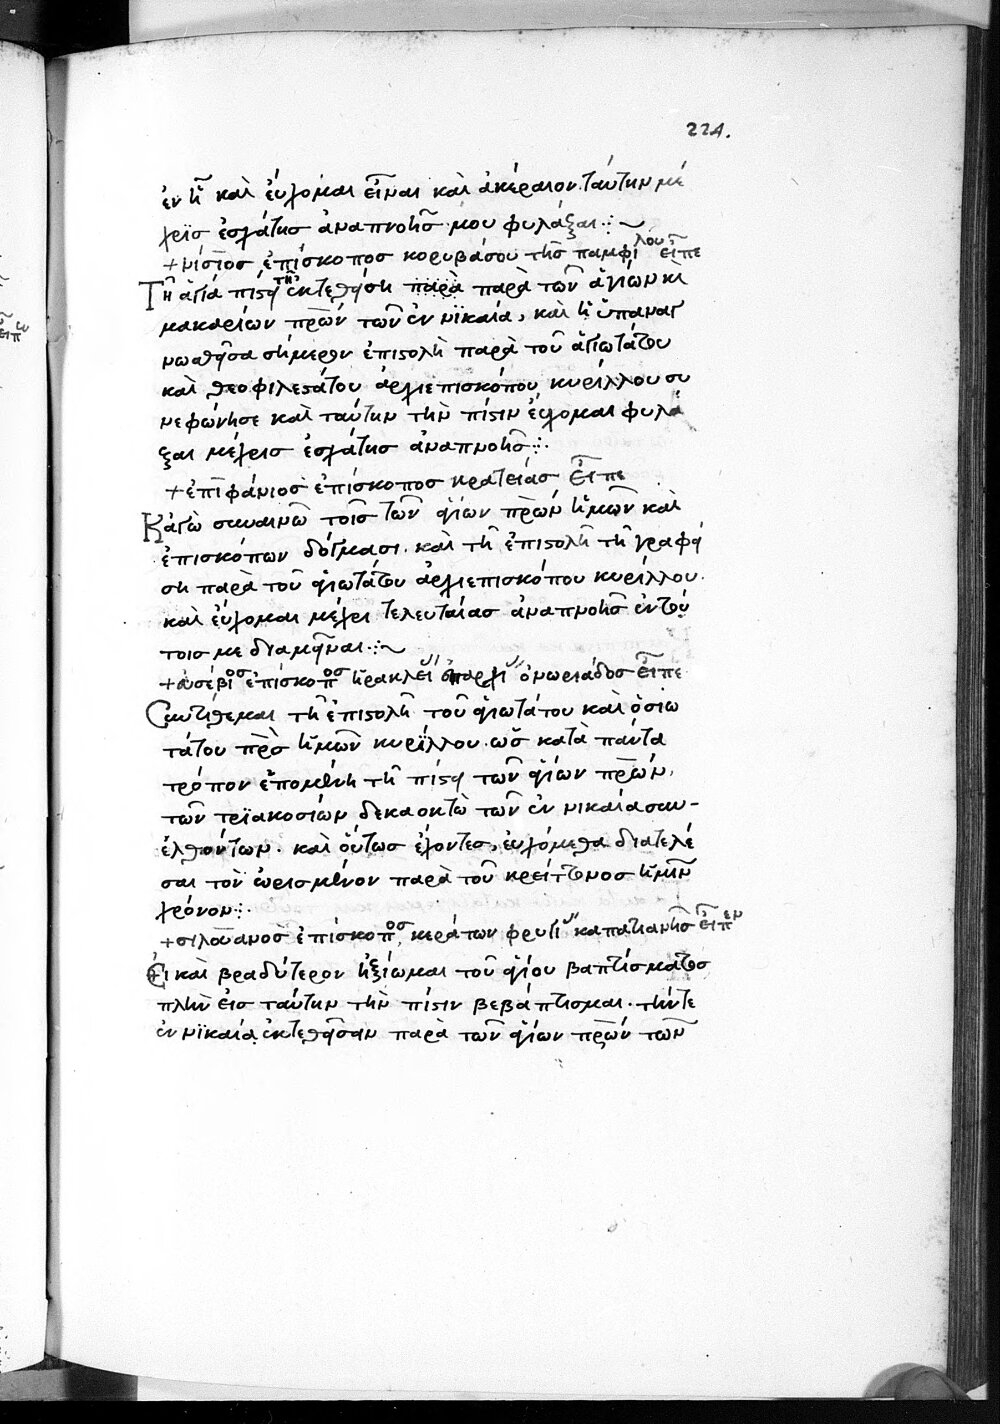 224.
ἐν ᾗ καὶ εὔχομαι εἶναι καὶ ἀκέραιον ταύτην μέ
χρις ἐσχάτης ἀναπνοῆς μου φυλάξαι
+ νίσιος ἐπίσκοπος κορυβάσου τῆς παμφίλου εἶπε
Τῆ ἁγία πίστει τῆ ἐκτεθείση παρὰ παρὰ τῶν ἁγίων κὶ
μακαρίων πρῶν τῶν ἐν νϊκαία, καὶ ἡ ὑπαναγ
νωσθεῖσα σήμερον ἐπιστολὴ παρὰ τοῦ ἁγιωτάτου
καὶ θεοφιλεστάτου ἀρχιεπισκόπου κυρίλλου συ
νεφώνησε καὶ ταύτην τὴν πίστιν εὔχομαι φυλά
ξαι μέχρις ἐσχάτης ἀναπνοῆς
+ ἐπιφάνιος ἐπίσκοπος κρατείας εἶπε
Κἀγὼ συναινῶ τοῖς τῶν ἁγίων πρῶν ἡμῶν καὶ
ἐπισκόπων δόγμασι. καὶ τῆ ἐπιστολῆ τῆ γραφεί
ση παρὰ τοῦ ἁγιωτάτου ἀρχιεπισκόπου κυρίλλου.
καὶ εὔχομαι μέχρι τελευταίας ἀναπνοῆς ἐν τού
τοις με διαμεῖναι
+ εὐσέβιος ἐπίσκοπος ἡρακλεί ὁνωριάδος εἶπε
Συντίθεμαι τῆ ἐπιστολῆ τοῦ ἁγιωτάτου καὶ ὁσιω
τάτου πρὸς ἡμῶν κυρίλλου ὡς κατὰ πάντα
τρόπον ἑπομένη τῆ πίστει τῶν ἁγίων πρῶν,
τῶν τριακοσίων δεκαοκτὼ τῶν ἐν νικαία συν-
ελθόντων. καὶ οὕτως ἔχοντες, εὐχόμεθα διατελέ
σαι τὸν ὡρισμένον παρὰ τοῦ κρείττονος ἡμῖν
χρόνον
+ σιλουανὸς ἐπίσκοπος, κεράτων φρυγί καπατιανῆς εἶπεν
Εἰ καὶ βραδύτερον ἠξίωμαι τοῦ ἁγίου βαπτίσματος
πλὴν εἰς ταύτην τὴν πίστιν βεβάπτισμαι. τήντε
ἐν νϊκαία ἐκτεθεῖσαν παρὰ τῶν ἁγίων πρῶν τῶν